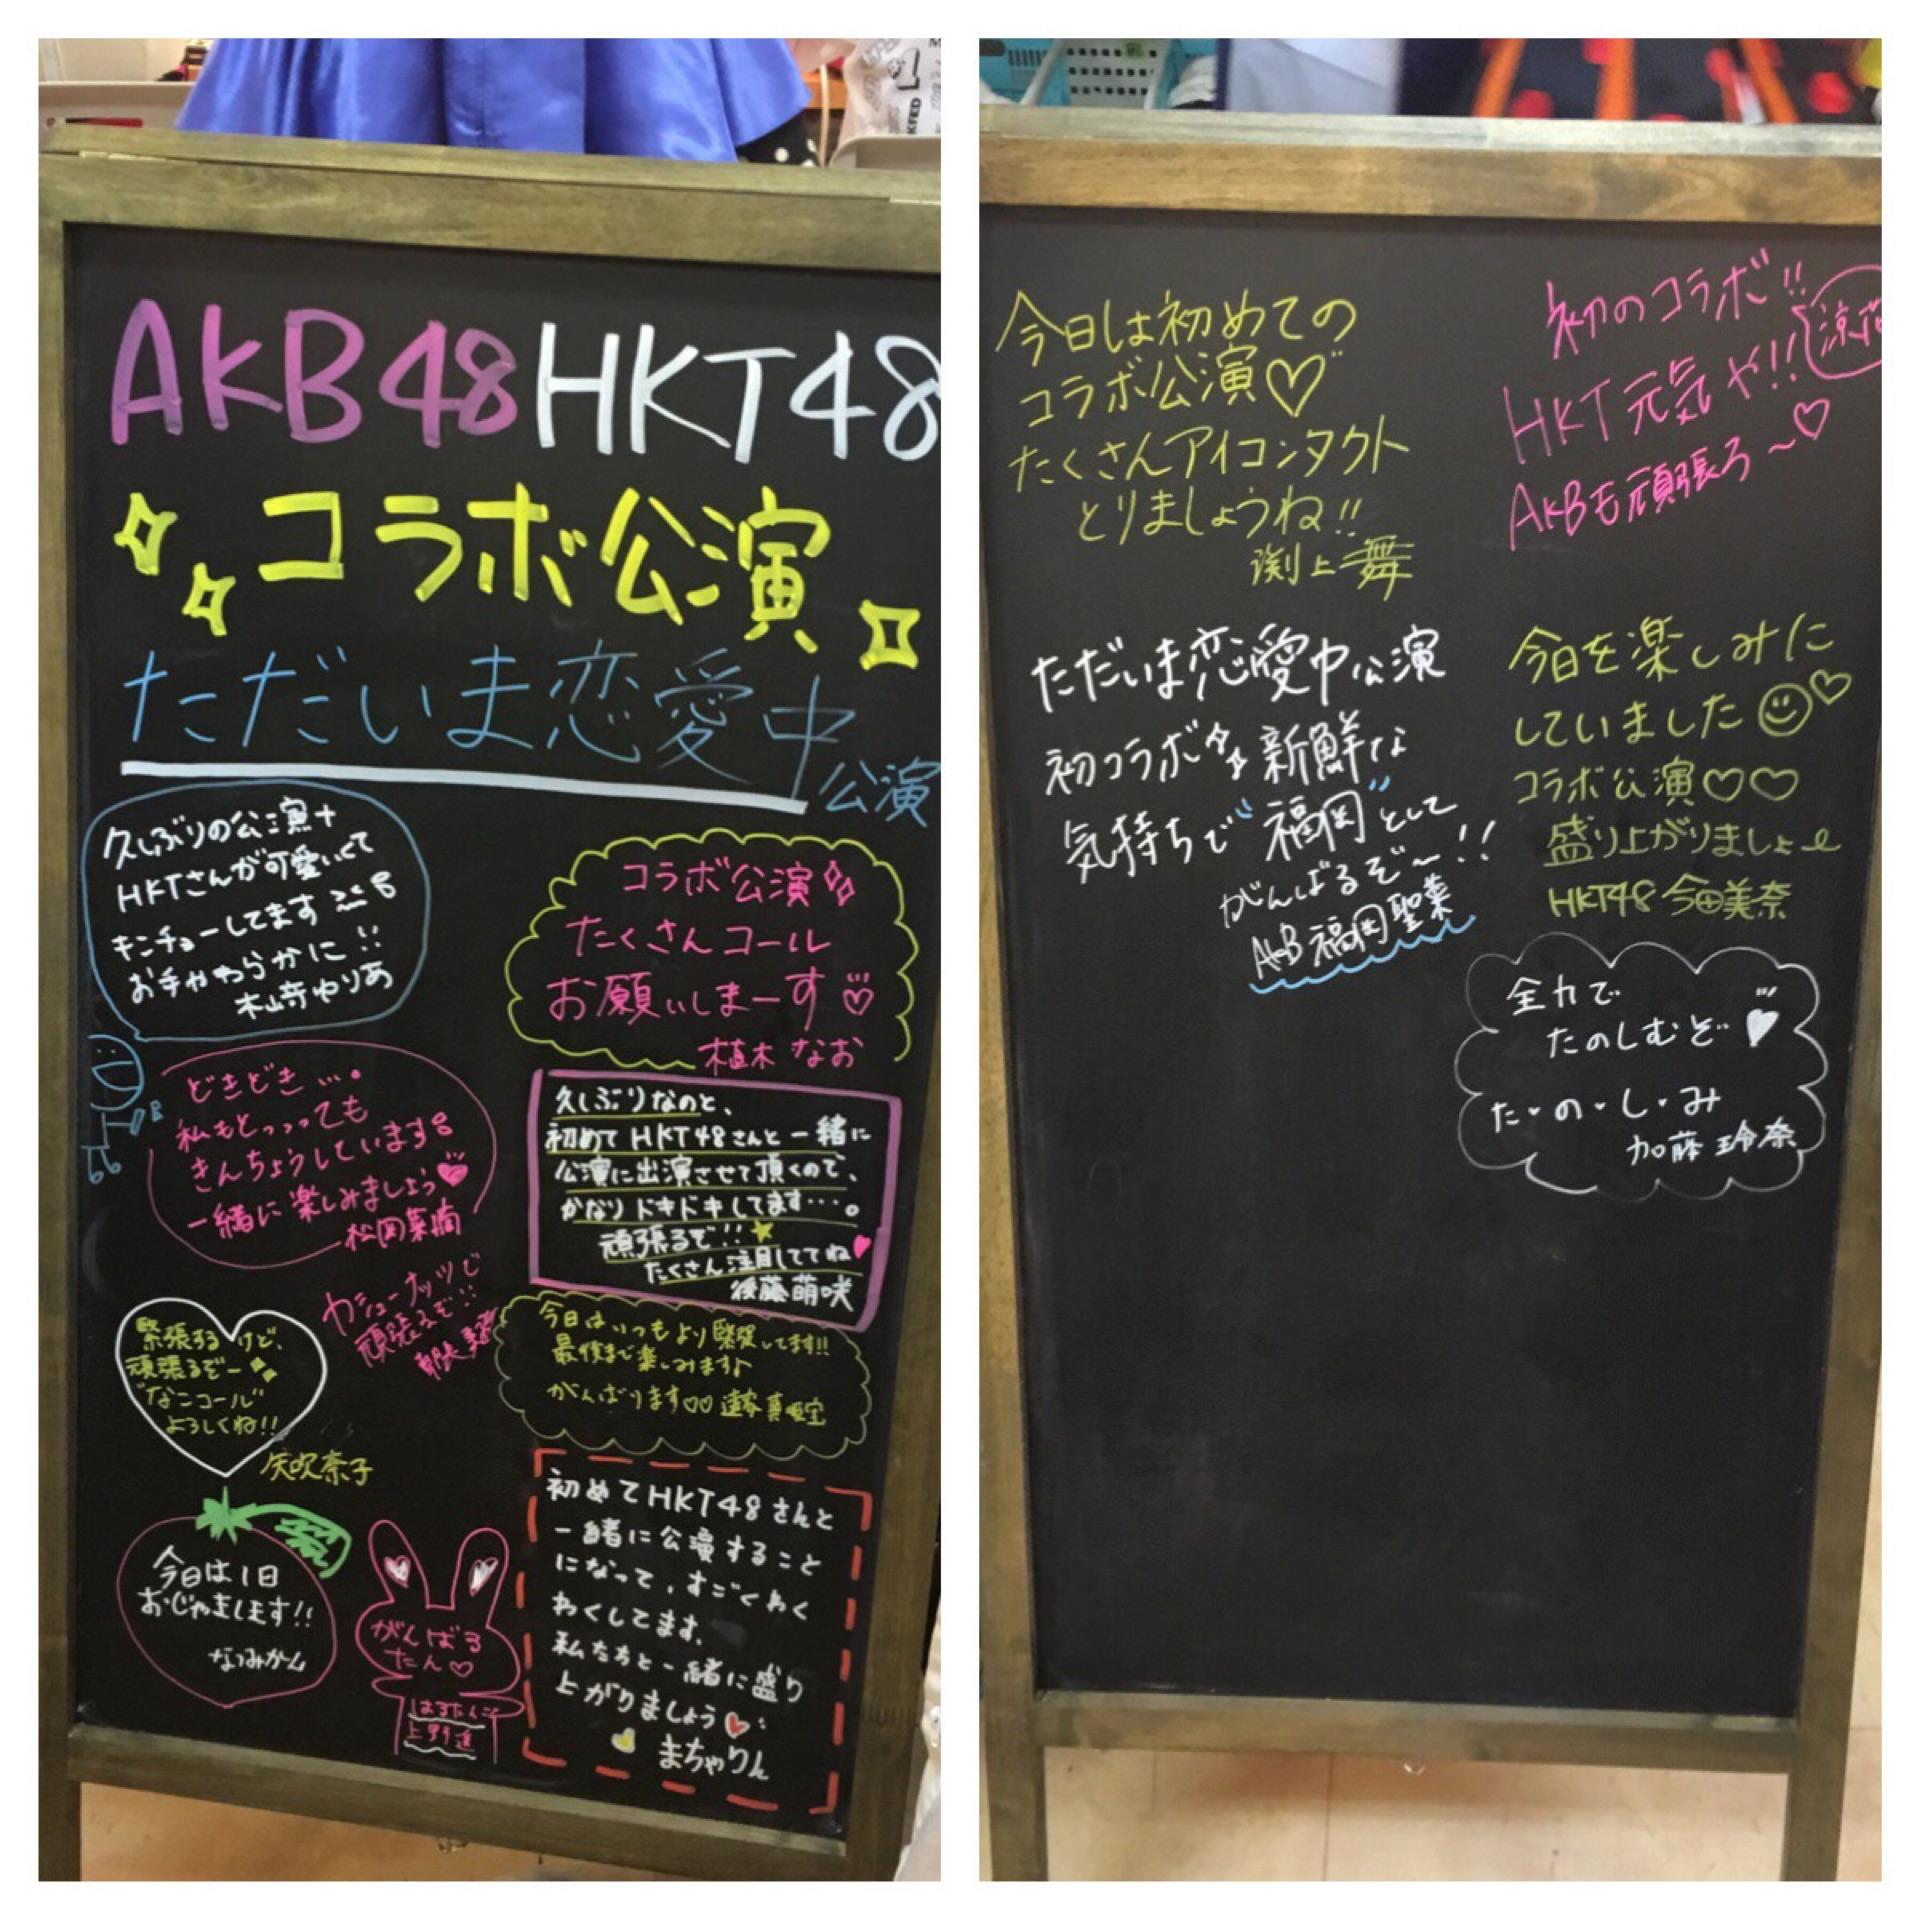 AKB48 HKT48
コラボ公演
ただいま恋愛中
公演
久しぶりの公演+
HKTさんが可愛いくて
キンチョーしてます
お手やわらかに!!
木﨑ゆりあ
コラボ公演
たくさんコール
お願いしまーす♡
植木なお
どきどき…。
私もとっっっても
きんちょうしています
一緒に楽しみましょう♥
松岡菜摘
久しぶりなのと、
初めてHKT48さんと一緒に
公演に出演させて頂くので、
かなりドキドキしてます…。
頑張るぞ!!★
たくさん注目しててね♥
後藤萌咲
カシューナッツで
頑張るぞ!!
朝長美桜
緊張するけど、
頑張るぞー
"なこコール"
よろしくね!!
矢吹奈子
今日はいつもより緊張してます!!
最後まで楽しみます♪
がんばります♡♡
今日は1日
おじゃまします!!
なつみかん
がんばる
たん♡
はるたんこと
上野遥
初めてHKT48さんと
一緒に公演すること
になって、すごくわく
わくしてます。
私たちと一緒に盛り
上がりましょう♥
まちゃりん
今日は初めての
コラボ公演♡
たくさんアイコンタクト
とりましょうね!!
渕上舞
初のコラボ!!
HKT元気や!!
AKBも頑張ろ〜♡
涼花
ただいま恋愛中公演
初コラボ 新鮮な
気持ちで"福岡"として
がんばるぞ〜!!
AKB福岡聖菜
今日を楽しみに
していました♡
コラボ公演♡♡
盛り上がりましょー
HKT48 今田美奈
全力で
たのしむぞ♥
た・の・し・み
加藤玲奈